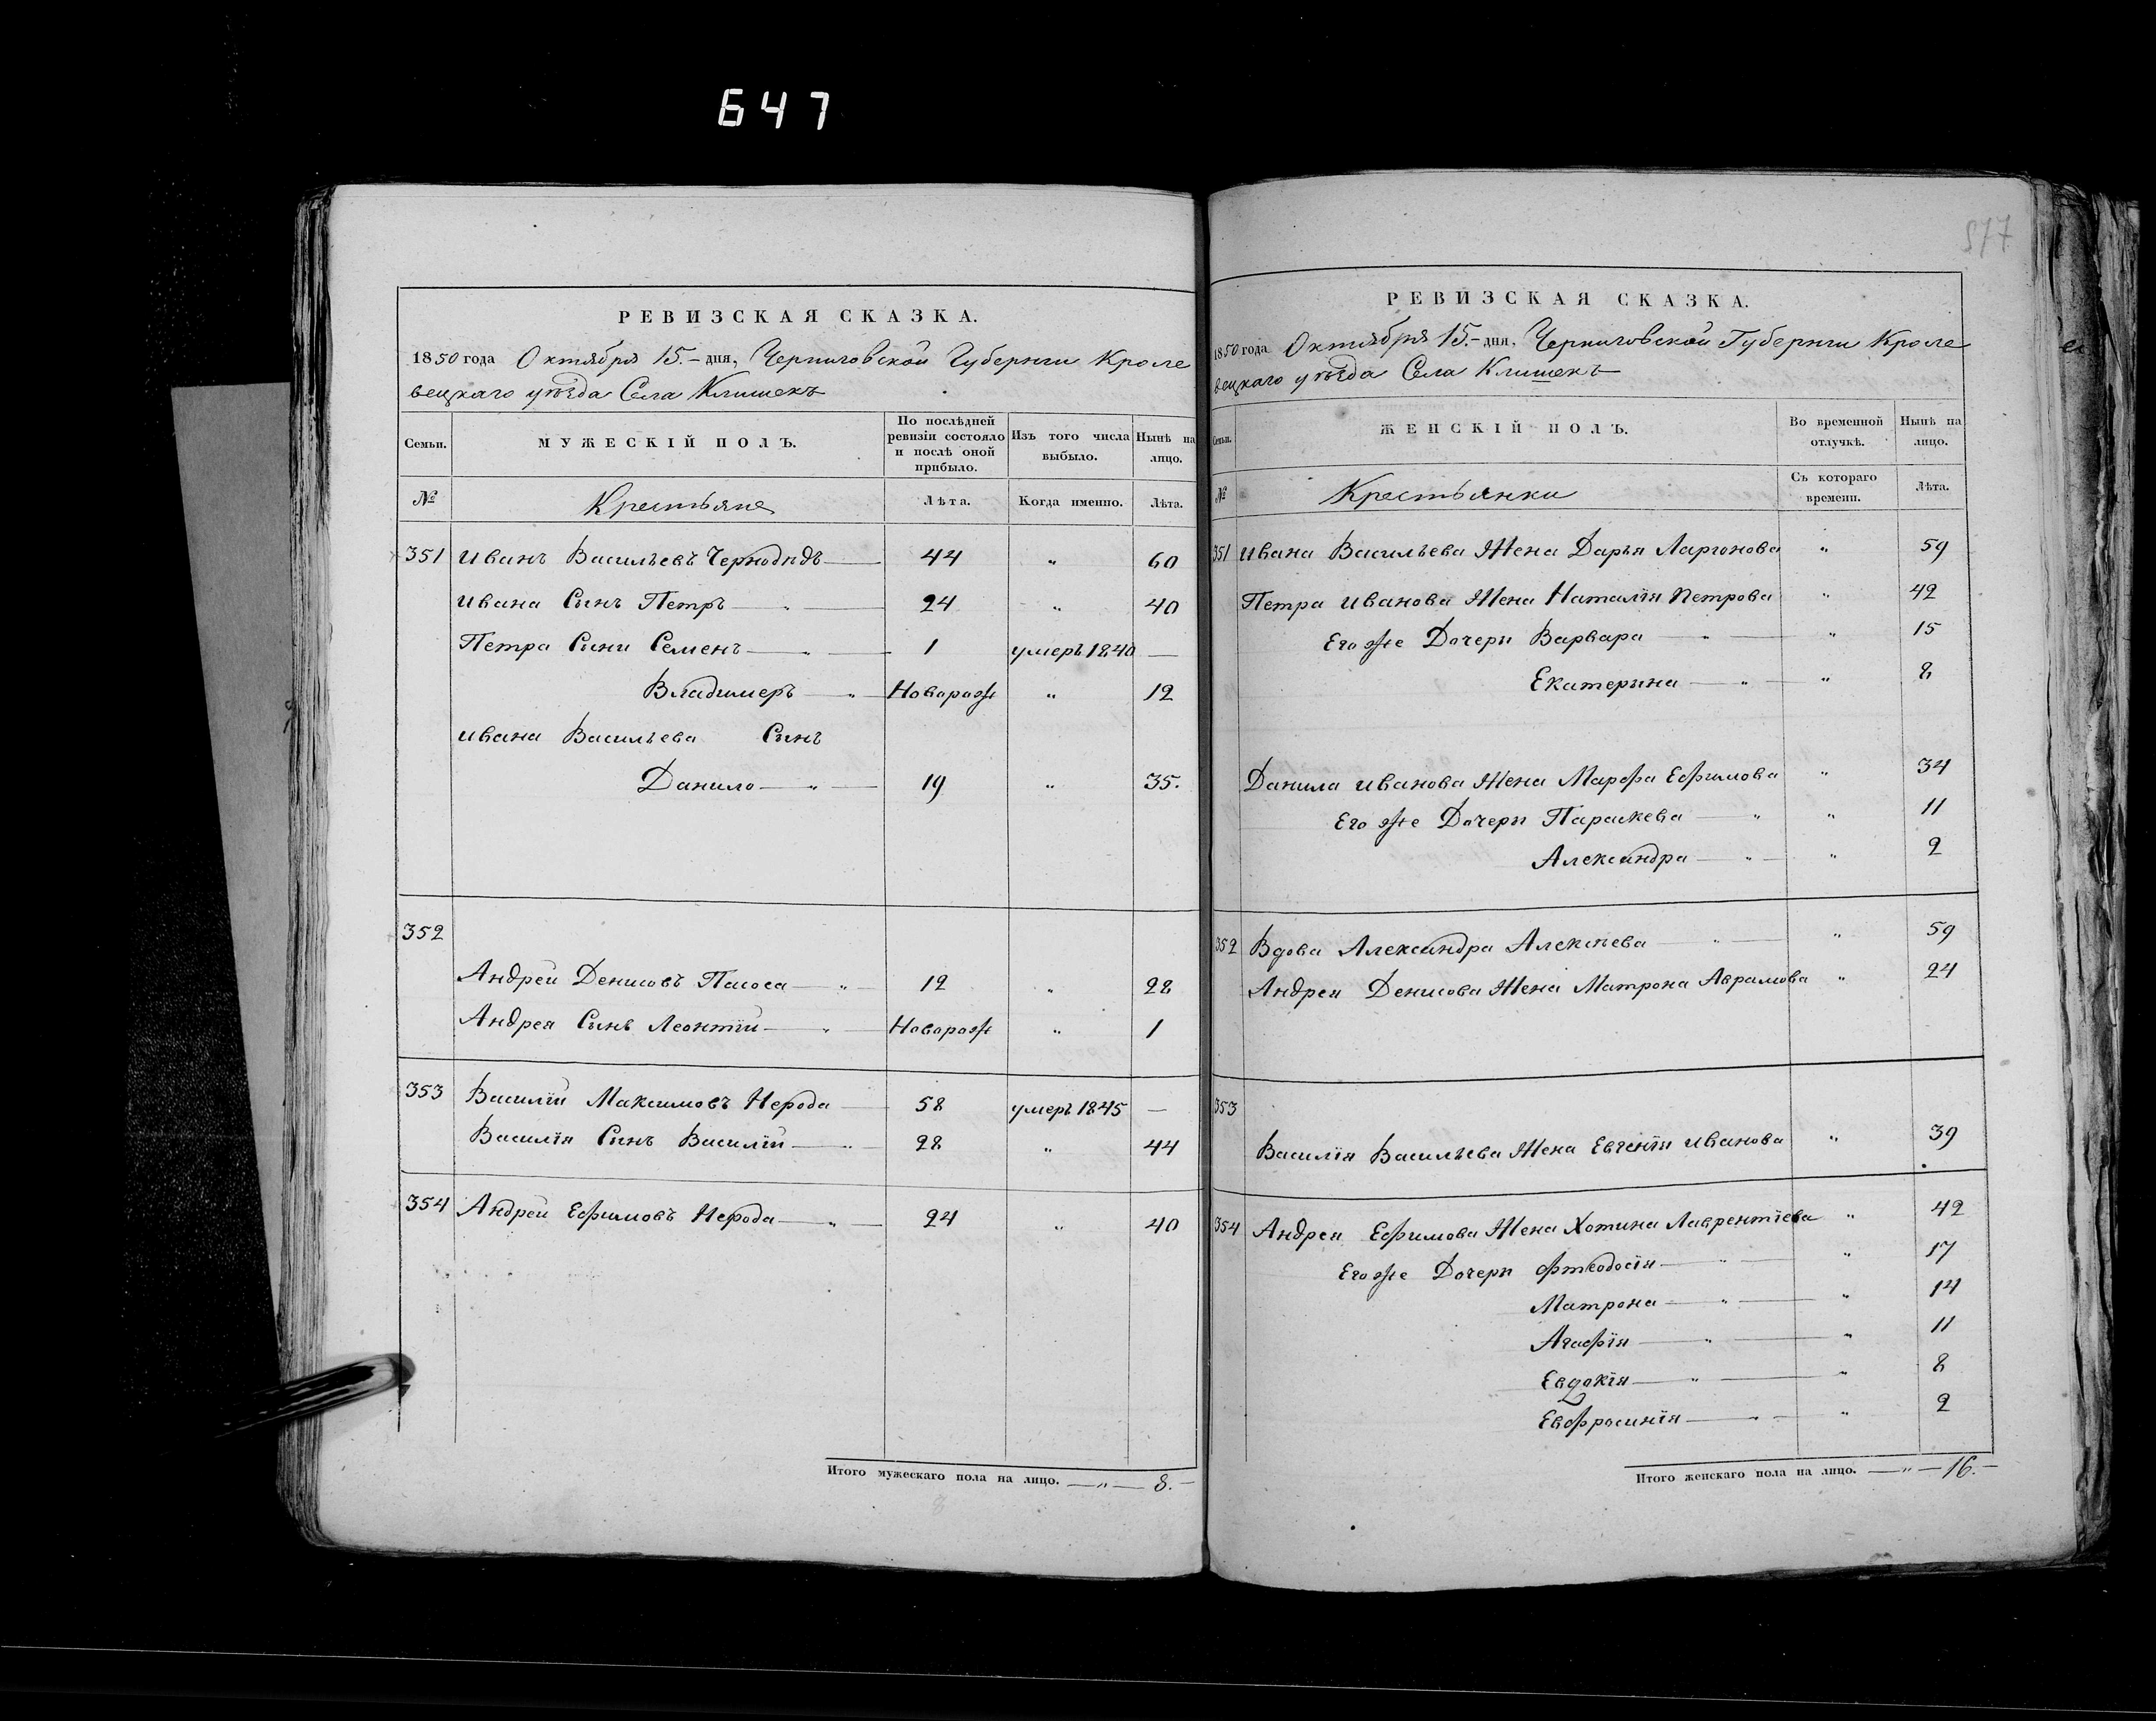 647
РЕВИЗСКАЯ СКАЗКА.
1850 года Октября 15.- дня, Черниговской Губернии Кроле
вецкаго уѣзда Села Клишекъ
Семьи. МУЖЕСКІЙ ПОЛЪ. По послѣдней ревизіи состояло и послѣ оной прибыло. Изъ того числа выбыло. Нынѣ на лицо.
№ Крестьяне Лѣта. Когда именно. Лѣта.
351 Иванъ Васильевъ Чернодѣдъ — 44 " 60
Ивана Сынъ Петръ — " — 24 " 40
Петра Сыни Семенъ — " — 1 умеръ 1840 —
Владимеръ — " — Новорож " 12
Ивана Васильева Сынъ
Данило — " — 19 " 35.
352
Андрей Денисовъ — " — 12 " 28
Андрея Сынъ Леонтій — " — Новорож " 1
353 Василій Максимовъ Нерода — 58 умеръ 1845 —
Василія Сынъ Василій — " — 28 " 44
354 Андрей Ефимовъ Нерода — " — 24 " 40
Итого мужескаго пола на лицо. — " — 8.-
577
РЕВИЗСКАЯ СКАЗКА.
1850 года Октября 15.- дня, Черниговской Губернии Кроле
вецкаго уѣзда Села Клишекъ
Семьи. ЖЕНСКІЙ ПОЛЪ. Во временной отлучкѣ. Нынѣ на лицо.
№ Крестьянки Съ котораго времени. Лѣта.
351 Ивана Васильева Жена Дарья Ларионова " 59
Петра Иванова Жена Наталія Петрова " 42
Его же Дочери Варвара — " — " 15
Екатерына — " — " 8
Данила Иванова Жена Марфа Ефимова " 34
Его же Дочери Параскева — " " 11
Александра — " — " 2
352 Вдова Александра Алексѣева — " — " 59
Андрея Денисова Жена Матрона Аврамова " 24
353
Василія Васильева Жена Евгенія Иванова " 39
354 Андрея Ефимова Жена Хотина Лаврентіева " 42
Его же Дочери Фтеодосія — " — " 17
Матрона — " — " 14
Агафія — " — " 11
Евдокія — " — " 8
Евфросинія — " — " 2
Итого женскаго пола на лицо. — " — 16.-